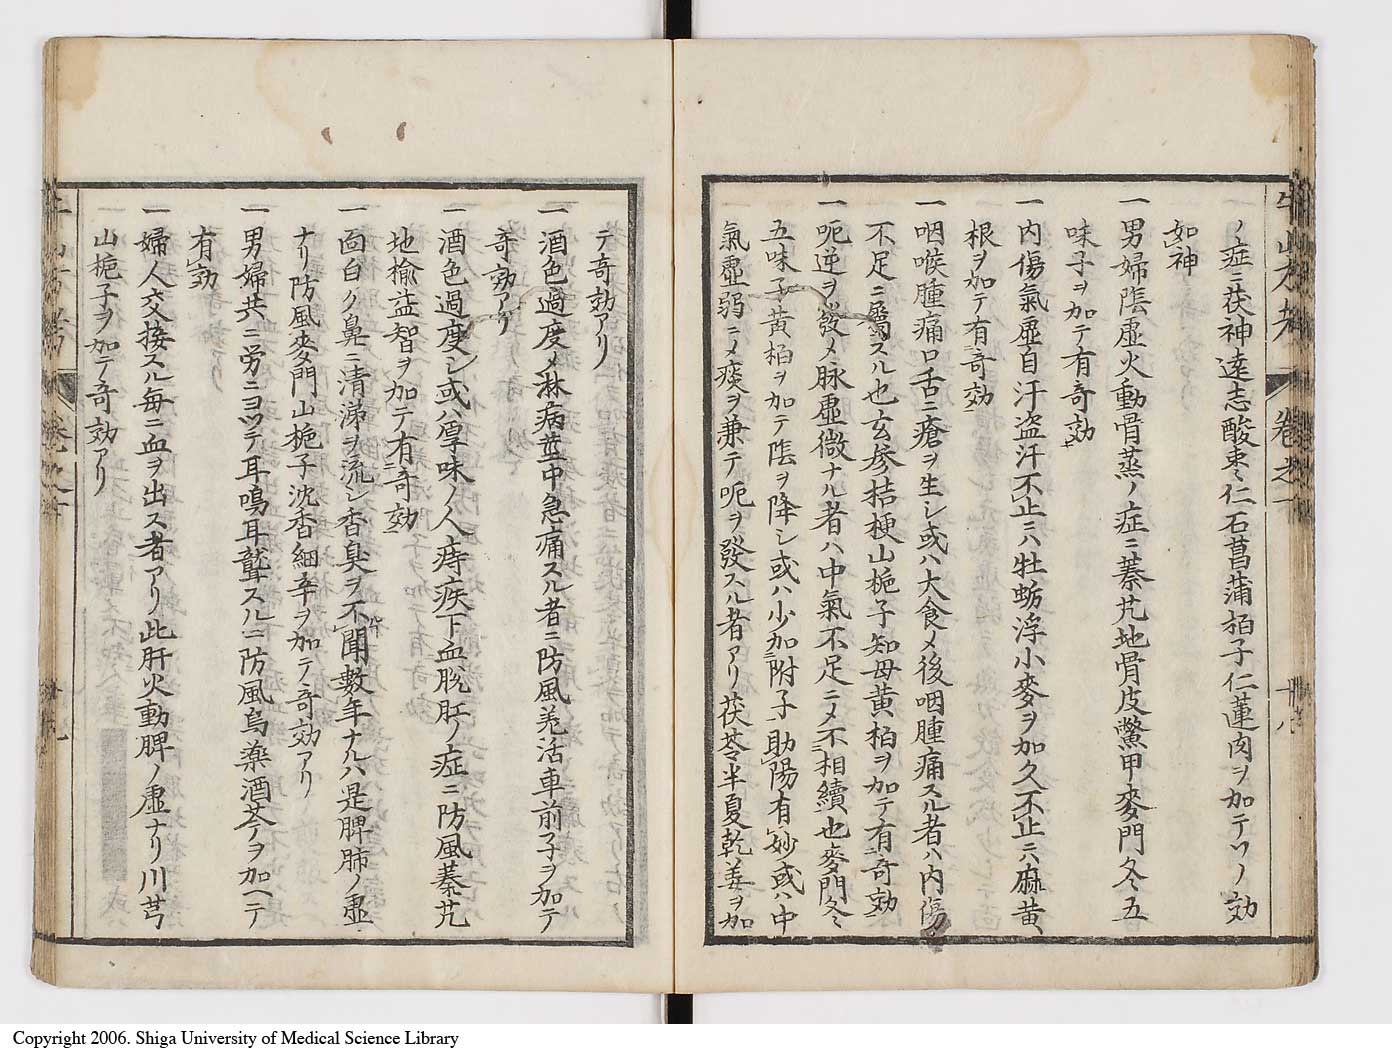 ノ症ニ茯神遠志酸棗仁石菖蒲栢子仁蓮肉ヲ加テソノ効
如神
一男婦陰虚火動骨蒸ノ症ニ蓁艽地骨皮鱉甲麥門冬五
味子ヲ加テ有奇効
一内傷氣虚自汗盗汗不止ニハ牡蛎浮小麥ヲ加久不止ニハ麻黄
根ヲ加テ有奇効
一咽喉腫痛口舌ニ瘡ヲ生シ或ハ大食メ後咽腫痛スル者ハ内傷
不足ニ属スル也玄参桔梗山梔子知母黄栢ヲ加テ有奇効
一呃逆ヲ發メ脉虚微ナル者ハ中氣不足ニメ不相續也麥門冬
五味子黄栢ヲ加テ陰ヲ降シ或ハ少加附子助陽有妙或ハ中
氣虚弱ニメ痰ヲ兼テ呃ヲ發スル者アリ茯苓半夏乾姜ヲ加
テ奇効アリ
一酒色過度メ淋病莖中急痛スル者ニ防風羌活車前子ヲ加テ
奇効アリ
一酒色過度シ或ハ厚味ノ人痔疾下血脱肛ノ症ニ防風蓁艽
地楡益智ヲ加テ有奇効
一面白ク鼻ニ清涕ヲ流シ香臭ヲ不聞數年ナルハ是脾肺ノ虚
ナリ防風麥門山梔子沈香細辛ヲ加テ奇効アリ
一男婦共ニ労ニヨツテ耳鳴耳聾スルニ防風烏藥酒芩ヲ加ヘテ
有効
一婦人交接スル毎ニ血ヲ出ス者アリ此肝火動脾ノ虚ナリ川芎
山梔子ヲ加テ奇効アリ
Copyright 2006. Shiga University of Medical Science Library